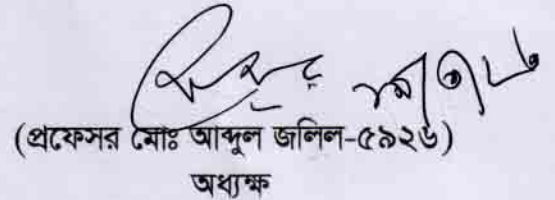 (প্রফেসর মোঃ আব্দুল জলিল-৫৯২৬)
অধ্যক্ষ